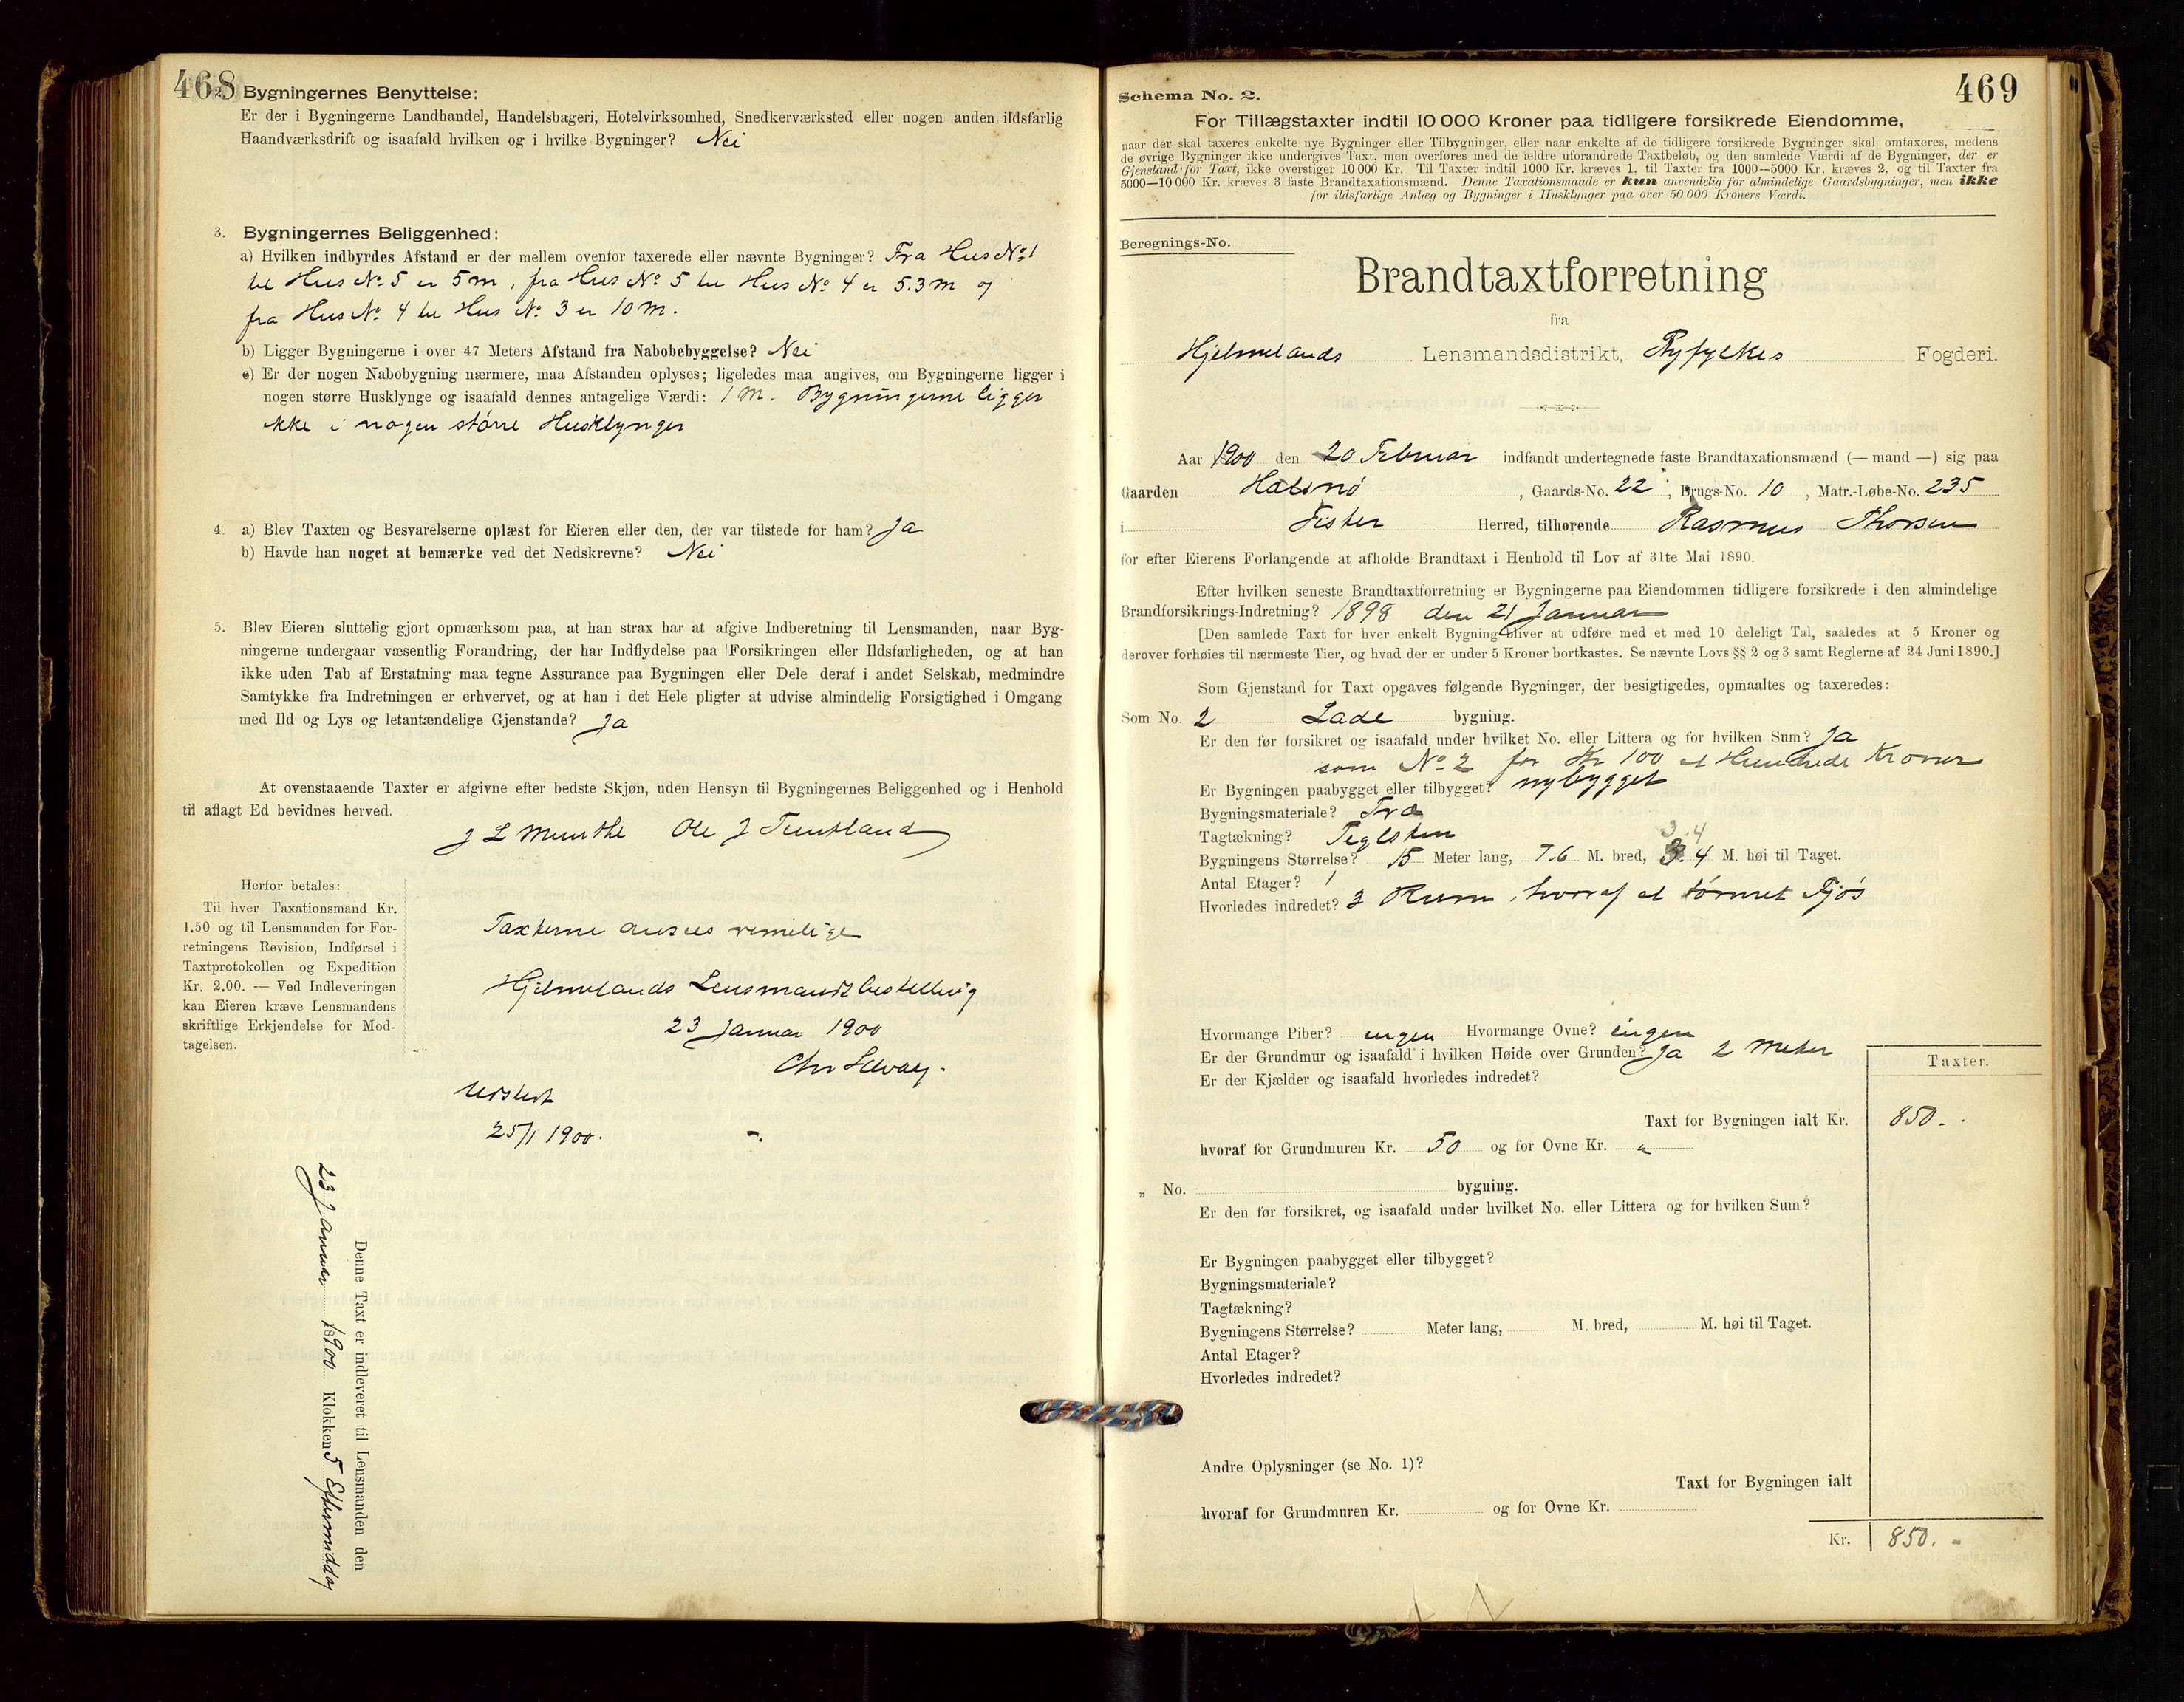 468
2. Bygningernes Benyttelse:
Er der i Bygningerne Landhandel, Handelsbageri, Hotelvirksomhed, Snedkerværksted eller nogen anden ildsfarlig
Haandværksdrift og isaafald hvilken og i hvilke Bygninger? Nei
3. Bygningernes Beliggenhed:
a) Hvilken indbyrdes Afstand er der mellem ovenfor taxerede eller nævnte Bygninger? Fra Hus No 1
til Hus No 5 er 5 m, fra Hus No 5 til Hus No 4 er 5.3 m og
fra Hus No 4 til Hus No 3 er 10 m.
b) Ligger Bygningerne i over 47 Meters Afstand fra Nabobebyggelse? Nei
c) Er der nogen Nabobygning nærmere, maa Afstanden oplyses; ligeledes maa angives, om Bygningerne ligger i
nogen større Husklynge og isaafald dennes antagelige Værdi: 1 M. Bygningerne ligger
ikke i nogen större Husklynger
4. a) Blev Taxten og Besvarelserne oplæst for Eieren eller den, der var tilstede for ham? Ja
b) Havde han noget at bemærke ved det Nedskrevne? Nei
5. Blev Eieren sluttelig gjort opmærksom paa, at han strax har at afgive Indberetning til Lensmanden, naar Byg-
ningerne undergaar væsentlig Forandring, der har Indflydelse paa Forsikringen eller Ildsfarligheden, og at han
ikke uden Tab af Erstatning maa tegne Assurance paa Bygningen eller Dele deraf i andet Selskab, medmindre
Samtykke fra Indretningen er erhvervet, og at han i det Hele pligter at udvise almindelig Forsigtighed i Omgang
med Ild og Lys og letantændelige Gjenstande? Ja
At ovenstaaende Taxter er afgivne efter bedste Skjøn, uden Hensyn til Bygningernes Beliggenhed og i Henhold
til aflagt Ed bevidnes herved.
J L Munthe Ole J
Herfor betales:
Til hver Taxationsmand Kr.
1.50 og til Lensmanden for For-
retningens Revision, Indførsel i
Taxtprotokollen og Expedition
Kr. 2.00. — Ved Indleveringen
kan Eieren kræve Lensmandens
skriftlige Erkjendelse for Mod-
tagelsen.
Taxterne ansees rimelige
Hjelmelands Lensmandsbestilling
23 Januar 1900
Chr
Udstedt
25/1 1900.
Denne Taxt er indleveret til Lensmanden den
23 Januar 1900 Klokken 5 Eftermiddag
469
Schema No. 2.
For Tillægstaxter indtil 10 000 Kroner paa tidligere forsikrede Eiendomme,
naar der skal taxeres enkelte nye Bygninger eller Tilbygninger, eller naar enkelte af de tidligere forsikrede Bygninger skal omtaxeres, medens
de øvrige Bygninger ikke undergives Taxt, men overføres med de ældre uforandrede Taxtbeløb, og den samlede Værdi af de Bygninger, der er
Gjenstand for Taxt, ikke overstiger 10 000 Kr. Til Taxter indtil 1000 Kr. kræves 1, til Taxter fra 1000—5000 Kr. kræves 2, og til Taxter fra
5000—10 000 Kr. kræves 3 faste Brandtaxationsmænd. Denne Taxationsmaade er kun anvendelig for almindelige Gaardsbygninger, men ikke
for ildsfarlige Anlæg og Bygninger i Husklynger paa over 50 000 Kroners Værdi.
Beregnings-No.
Brandtaxtforretning
fra
Hjelmelands Lensmandsdistrikt, Ryfylkes Fogderi.
Aar 1900 den 20 Februar indfandt undertegnede faste Brandtaxationsmænd (— mand —) sig paa
Gaarden Halsnö, Gaards-No. 22, Brugs-No. 10, Matr.-Løbe-No. 235
i Fister Herred, tilhørende Rasmus Thorsen
for efter Eierens Forlangende at afholde Brandtaxt i Henhold til Lov af 31te Mai 1890.
Efter hvilken seneste Brandtaxtforretning er Bygningerne paa Eiendommen tidligere forsikrede i den almindelige
Brandforsikrings-Indretning? 1898 den 21 Januar
[Den samlede Taxt for hver enkelt Bygning bliver at udføre med et med 10 deleligt Tal, saaledes at 5 Kroner og
derover forhøies til nærmeste Tier, og hvad der er under 5 Kroner bortkastes. Se nævnte Lovs §§ 2 og 3 samt Reglerne af 24 Juni 1890.]
Som Gjenstand for Taxt opgaves følgende Bygninger, der besigtigedes, opmaaltes og taxeredes:
Som No. 2 Lade bygning.
Er den før forsikret og isaafald under hvilket No. eller Littera og for hvilken Sum? Ja
som No 2 for Kr 100 et Hundrede Kroner
Er Bygningen paabygget eller tilbygget? nybygget
Bygningsmateriale? Træ
Tagtækning? Teglsten
3.4
Bygningens Størrelse? 15 Meter lang, 7.6 M. bred, 3.4 M. høi til Taget.
Antal Etager? 1
Hvorledes indredet? 3 Rum, hvoraf et tömret Fjös
Hvormange Piber? ingen Hvormange Ovne? ingen
Er der Grundmur og isaafald i hvilken Høide over Grunden? Ja 2 Meter
Er der Kjælder og isaafald hvorledes indredet?
Taxter.
Taxt for Bygningen ialt Kr. 850. -
hvoraf for Grundmuren Kr. 50 og for Ovne Kr. "
„ No. bygning.
Er den før forsikret, og isaafald under hvilket No. eller Littera og for hvilken Sum?
Er Bygningen paabygget eller tilbygget?
Bygningsmateriale?
Tagtækning?
Bygningens Størrelse? Meter lang, M. bred, M. høi til Taget.
Antal Etager?
Hvorledes indredet?
Andre Oplysninger (se No. 1)?
Taxt for Bygningen ialt
hvoraf for Grundmuren Kr. og for Ovne Kr.
Kr. 850. -